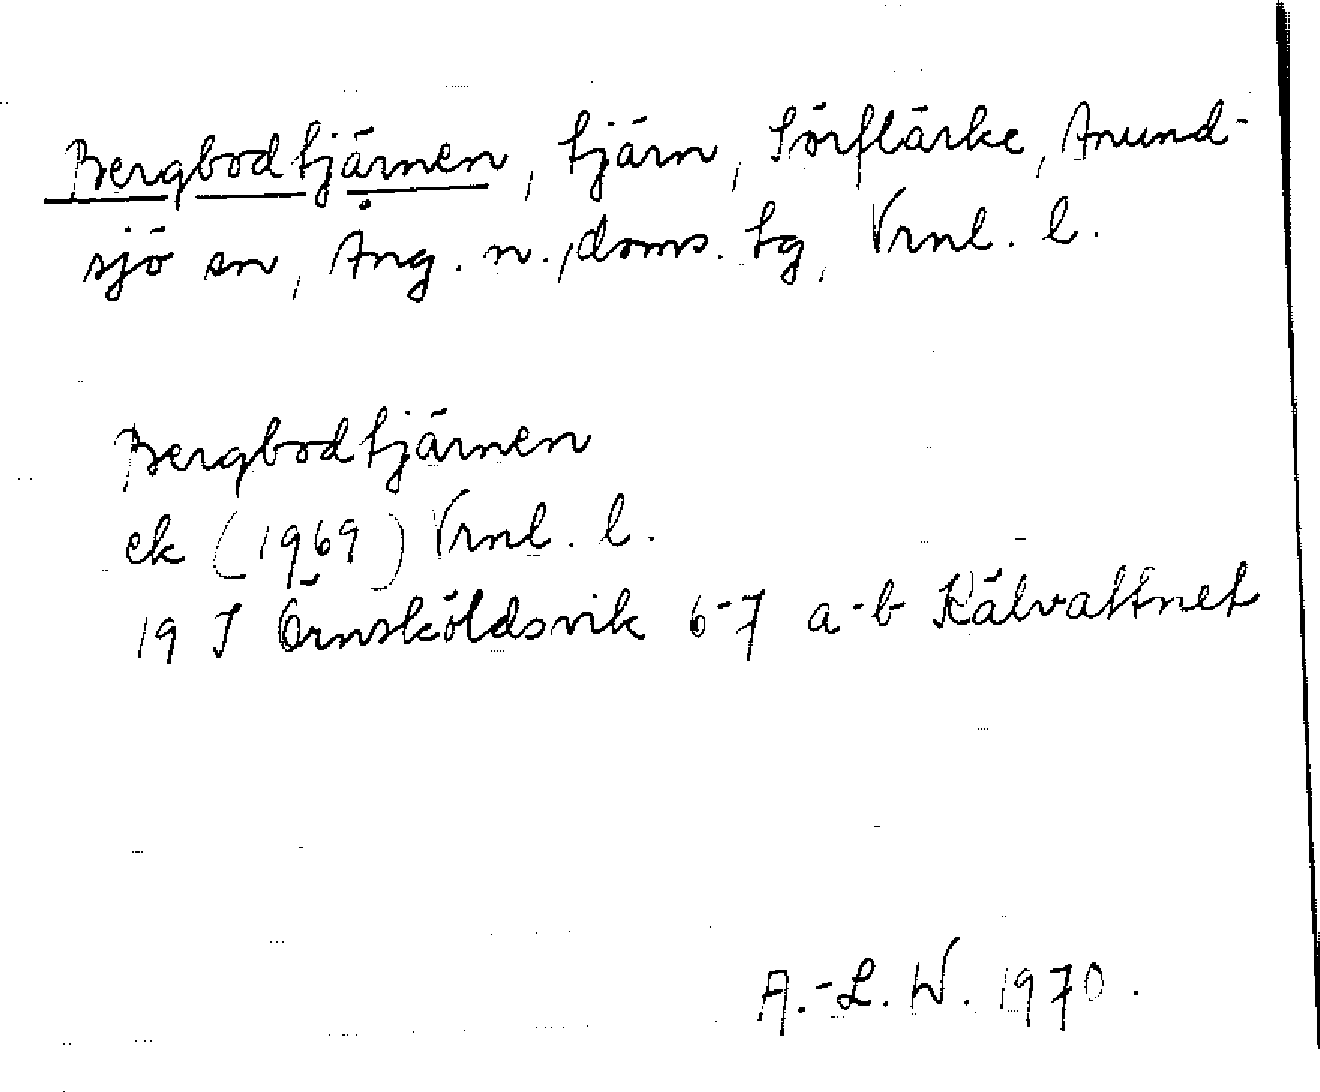 Bergbodtjärnen, tjärn, Sörflärke, Anund-
sjö sn, Ång. n., doms. lg, Vrnl. l.
Bergbodtjärnen
ek (1969) Vrnl. l.
19 J Örnsköldsvik 6-7 a-b Kälvattnet
A.-L. W. 1970.